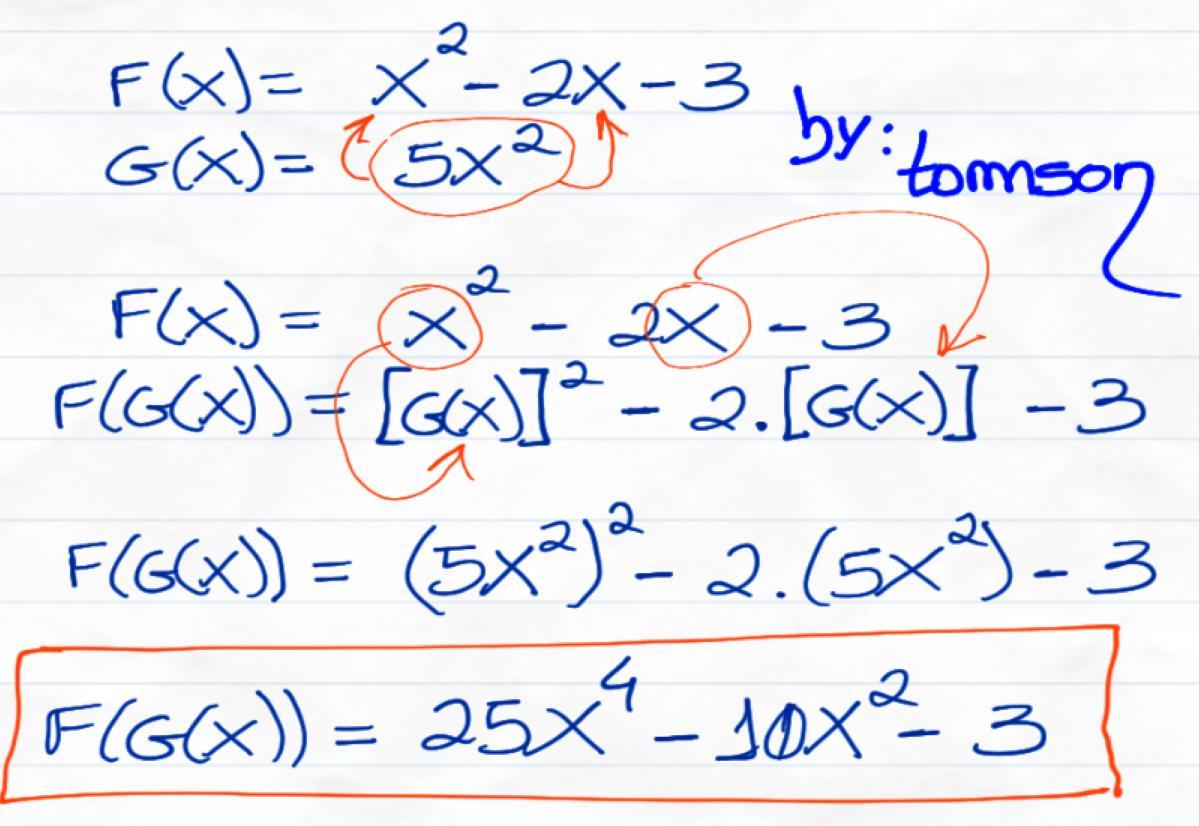 F(x) = x² - 2x - 3
G(x) = 5x²
by: tommson
F(x) = x² - 2x - 3
F(G(x)) = [G(x)]² - 2.[G(x)] - 3
F(G(x)) = (5x²)² - 2.(5x²) - 3
F(G(x)) = 25x⁴ - 10x² - 3